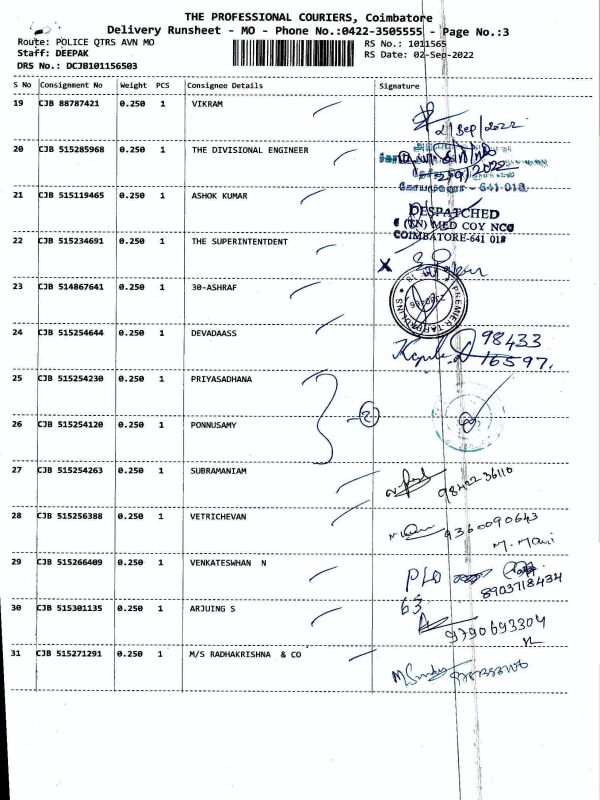 THE PROFESSIONAL COURIERS, Coimbatore
Delivery Runsheet - MO - Phone No.:0422-3505555 - Page No.:3
Route: POLICE QTRS AVN MO
RS No.: 1011565
Staff: DEEPAK
RS Date: 02-Sep-2022
DRS No.: DCJB101156503
S No Consignment No Weight PCS Consignee Details Signature
19 CJB 88787421 0.250 1 VIKRAM
2/Sep/2022
20 CJB 515285968 0.250 1 THE DIVISIONAL ENGINEER
2/9/2022
641 018
21 CJB 515119465 0.250 1 ASHOK KUMAR
DESPATCHED
6 (TN) MED COY NCC
COIMBATORE-641 018
22 CJB 515234691 0.250 1 THE SUPERINTENTDENT
X
23 CJB 514867641 0.250 1 30-ASHRAF
24 CJB 515254644 0.250 1 DEVADAASS
98433
16597.
25 CJB 515254230 0.250 1 PRIYASADHANA
- 2
26 CJB 515254120 0.250 1 PONNUSAMY
27 CJB 515254263 0.250 1 SUBRAMANIAM
98422 36110
28 CJB 515256388 0.250 1 VETRICHEVAN
9360090643
M. Mani
29 CJB 515266409 0.250 1 VENKATESWHAN N
8903718434
63
30 CJB 515301135 0.250 1 ARJUING S
9790693304
31 CJB 515271291 0.250 1 M/S RADHAKRISHNA & CO